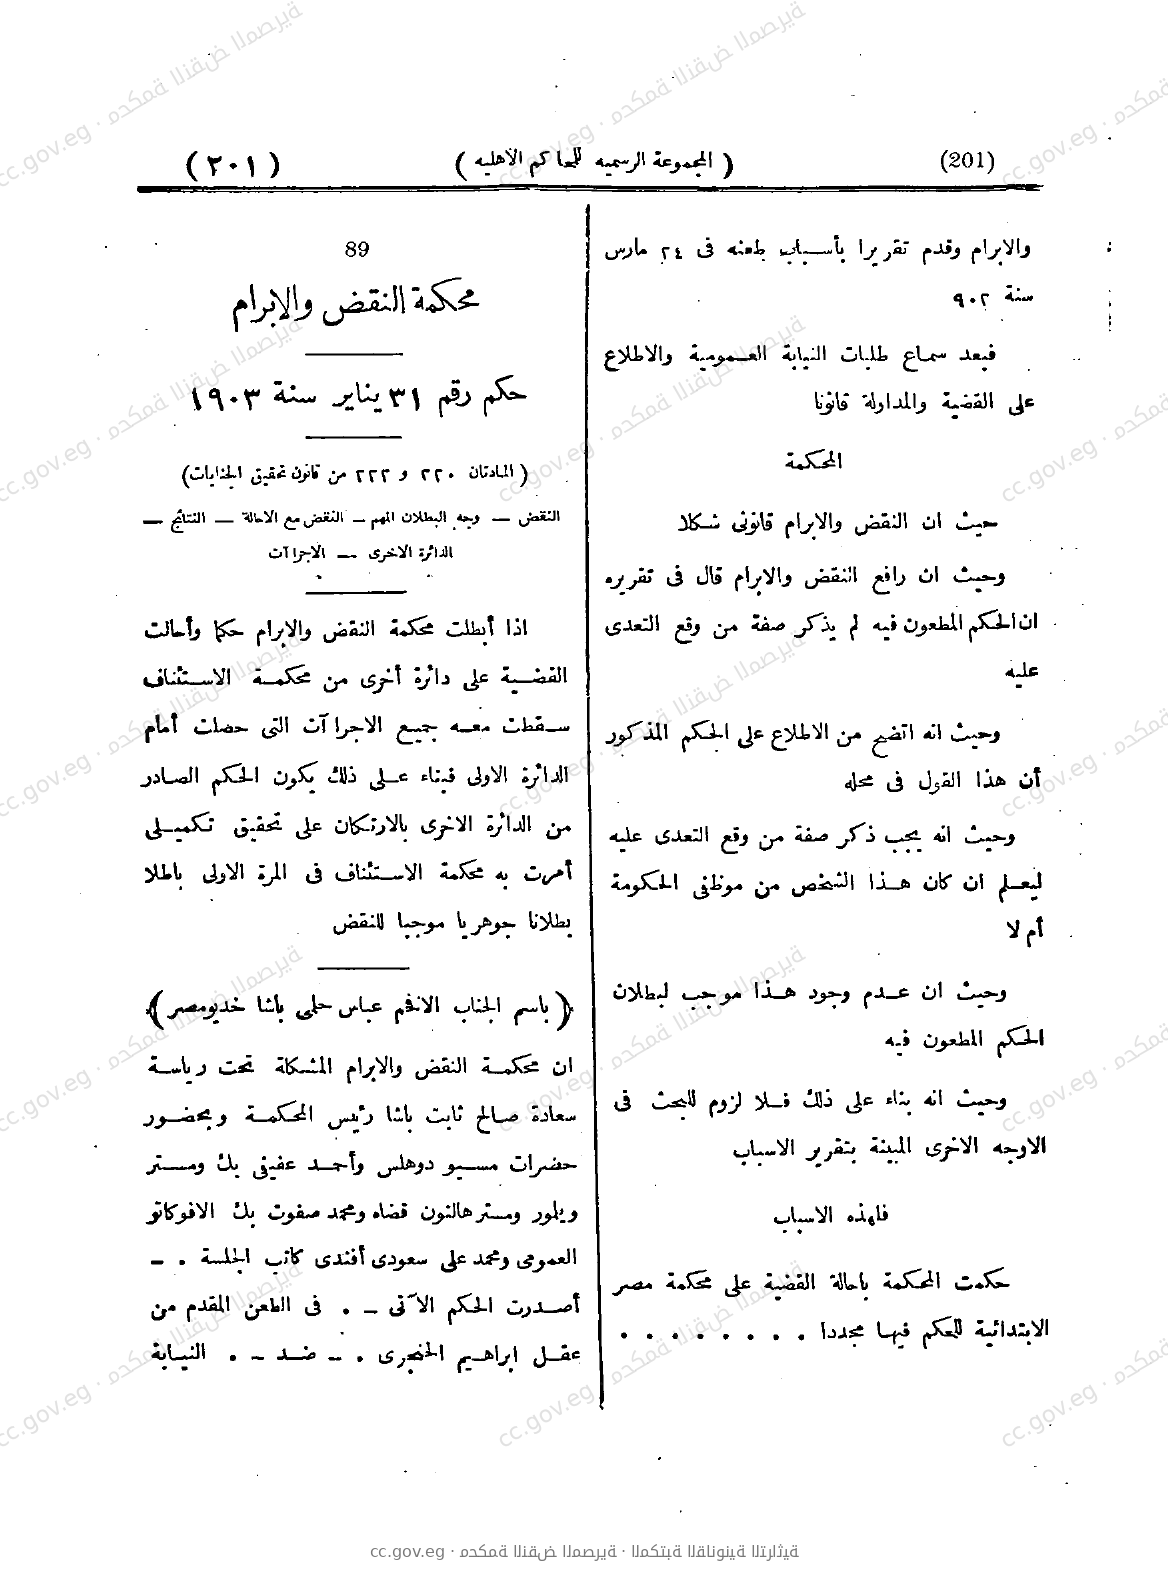 (201)
( المجموعة الرسميه للمحاكم الاهليه )
( ٢٠١ )
والابرام وقدم تقريرا بأسباب طعنه فى ٢٤ مارس
سنة ٩٠٢
فبعد سماع طلبات النيابة العمومية والاطلاع
على القضية والمداولة قانونا
المحكمة
حيث ان النقض والابرام قانونى شكلا
وحيث ان رافع النقض والابرام قال فى تقريره
ان الحكم المطعون فيه لم يذكر صفة من وقع التعدى
عليه
وحيث انه اتضح من الاطلاع على الحكم المذكور
أن هذا القول فى محله
وحيث انه يجب ذكر صفة من وقع التعدى عليه
ليعلم ان كان هذا الشخص من موظفى الحكومة
أم لا
وحيث ان عدم وجود هذا موجب لبطلان
الحكم المطعون فيه
وحيث انه بناء على ذلك فلا لزوم للبحث فى
الاوجه الاخرى المبينة بتقرير الاسباب
فلهذه الاسباب
حكمت المحكمة باحالة القضية على محكمة مصر
الابتدائية للحكم فيها مجددا . . . . . . . .
89
محكمة النقض والابرام
حكم رقم ٣١ يناير سنة ١٩٠٣
( المادتان ٢٢٠ و ٢٢٢ من قانون تحقيق الجنايات)
النقض — وجه البطلان المهم — النقض مع الاحالة — النتائج —
الدائرة الاخرى — الاجراآت
اذا أبطلت محكمة النقض والابرام حكما وأحالت
القضية على دائرة أخرى من محكمة الاستئناف
سقطت معه جميع الاجراآت التى حصلت أمام
الدائرة الاولى فبناء على ذلك يكون الحكم الصادر
من الدائرة الاخرى بالارتكان على تحقيق تكميلى
أمرت به محكمة الاستئناف فى المرة الاولى باطلا
بطلانا جوهريا موجبا للنقض
(باسم الجناب الافخم عباس حلمى باشا خديومصر)
ان محكمة النقض والابرام المشكلة تحت رياسة
سعادة صالح ثابت باشا رئيس المحكمة وبحضور
حضرات مسيو دوهلس وأحمد عفيفى بك ومستر
ويلمور ومستر هالتون قضاه ومحمد صفوت بك الافوكاتو
العمومى ومحمد على سعودى أفندى كاتب الجلسة . –
أصدرت الحكم الآتى – . فى الطعن المقدم من
عقل ابراهيم الخنجرى . – ضد – . النيابة
cc.gov.eg · محكمة النقض المصرية · المكتبة القانونية التراثية